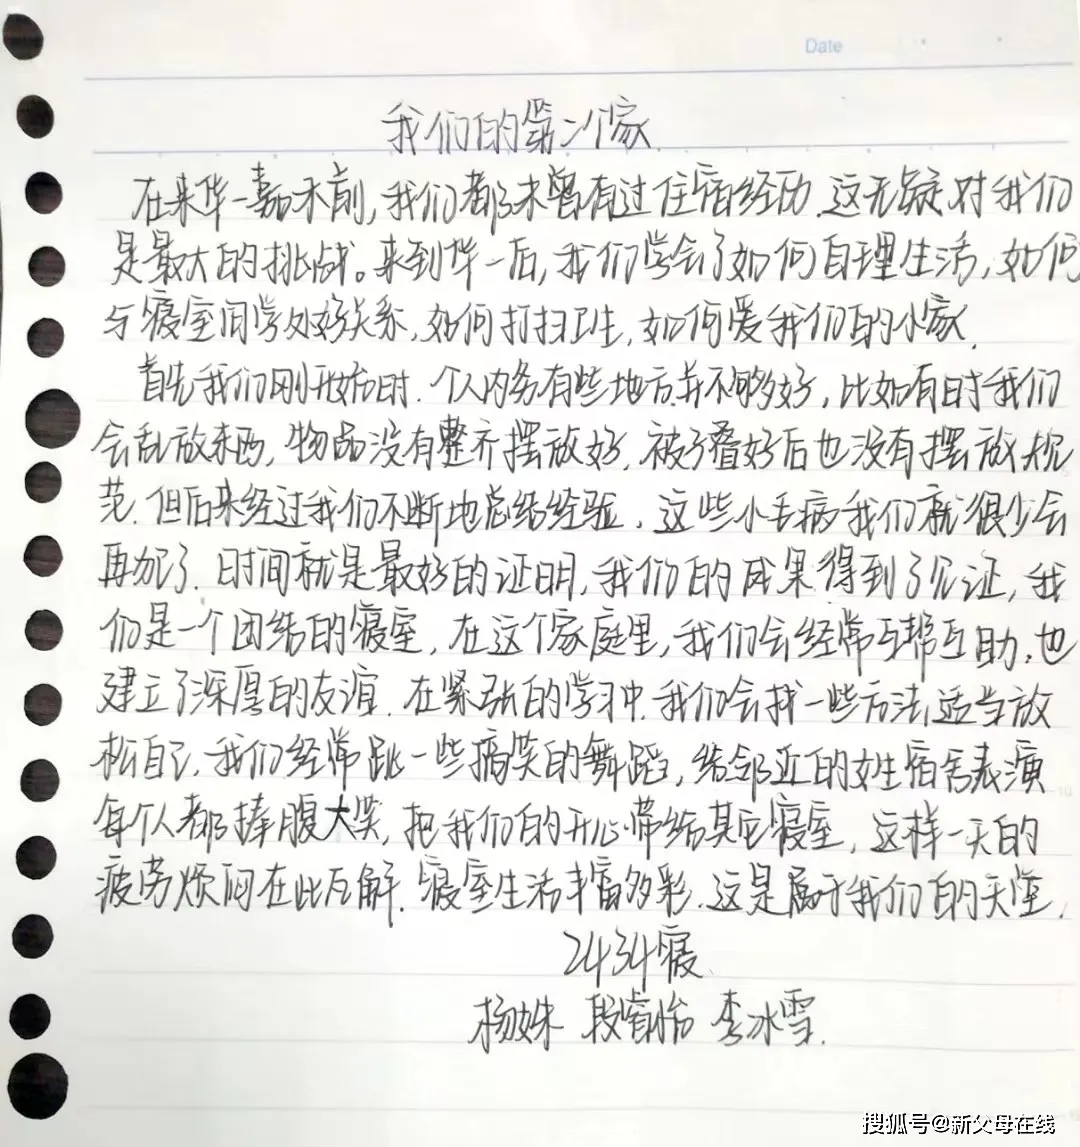 Date
我们的第二个家
在来华一嘉禾前,我们都未曾有过住宿经历.这无疑对我们
是最大的挑战。来到华一后,我们学会了如何自理生活,如何
与寝室同学处好关系,如何打扫卫生,如何爱我们的小家.
首先我们刚开始时.个人内务有些地方并不够好,比如有时我们
会乱放东西,物品没有整齐摆放好,被子叠好后也没有摆放规
范.但后来经过我们不断地总结经验,这些小毛病我们就很少会
再犯了.时间就是最好的证明,我们的成果得到了见证,我
们是一个团结的寝室,在这个家庭里,我们会经常互帮互助,也
建立了深厚的友谊.在紧张的学习中.我们会找一些方法适当放
松自己,我们经常跳一些搞笑的舞蹈,给邻近的女生宿舍表演
每个人都捧腹大笑,把我们的开心带给其它寝室,这样一天的
疲劳烦闷在此瓦解.寝室生活丰富多彩.这是属于我们的天堂.
2434寝.
杨姝 段睿怡 李冰雪.
搜狐号@新父母在线